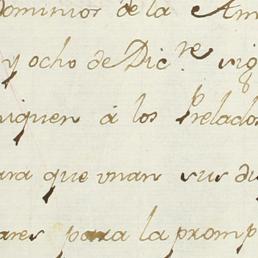 Dominios de la Am
y ocho de Dic.re
niquen á los Prelados
para que unan sus
ares para la promp